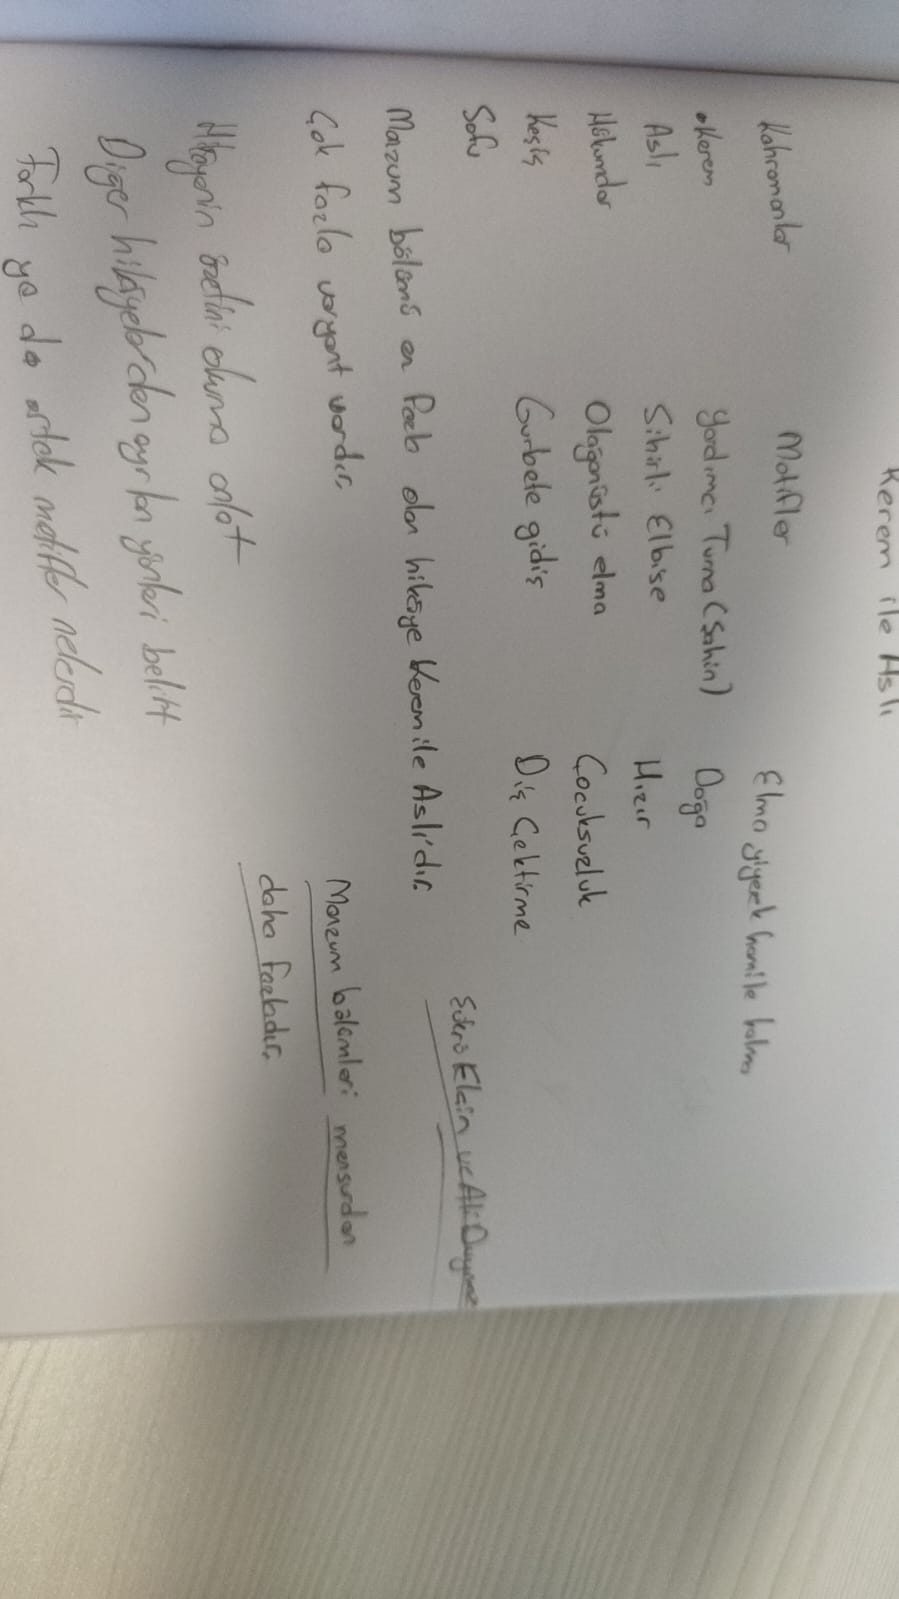 Kerem ile Aslı
Kahramanlar Motifler Elma yiyerek hamile kalma
• Kerem Yardımcı Turna (Şahin) Doğa
Aslı Sihirli Elbise Hızır
Hükümdar Olağanüstü elma Çocuksuzluk
Keşiş Gurbete gidiş Diş Çektirme
Sofu
Manzum bölümü en fazla olan hikâye Kerem ile Aslı'dır.
Çok fazla varyant vardır.
Manzum bölümleri mensurdan
daha fazladır.
Hikayenin özetini okuma anlat
Diğer hikâyelerden ayrılan yönleri belirt
Farklı ya da ortak motifler nelerdir